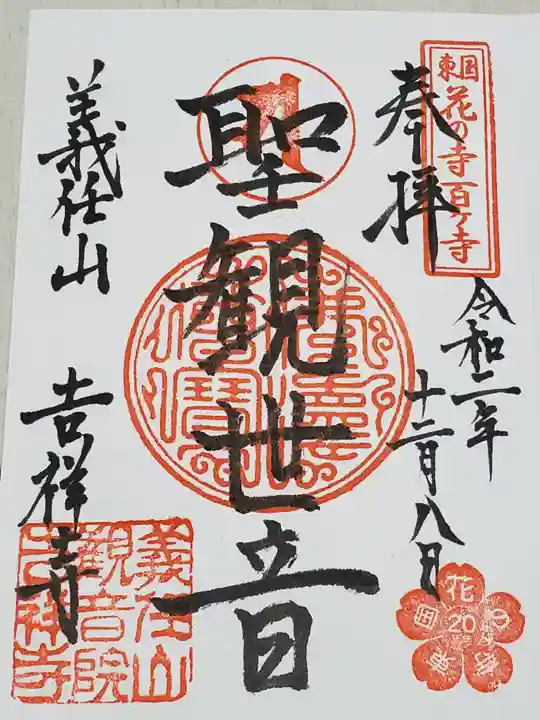 東国花の寺百ヶ寺
奉拝
令和二年
十二月八日
聖観世音
義任山
吉祥寺
義任山
観音院
吉祥寺
花
20